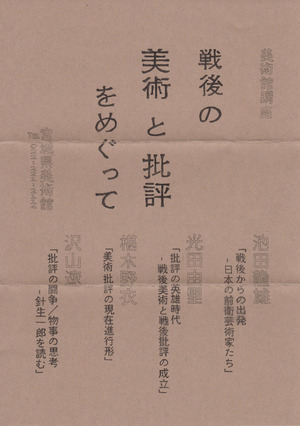 美術館講座
戦後の
美術と批評
をめぐって
池田龍雄
「戦後からの出発
-日本の前衛芸術家たち」
光田由里
「批評の英雄時代
-戦後美術と戦後批評の成立」
椹木野衣
「美術批評の現在進行形」
沢山遼
「批評の闘争／物事の思考
-針生一郎を読む」
宮城県美術館